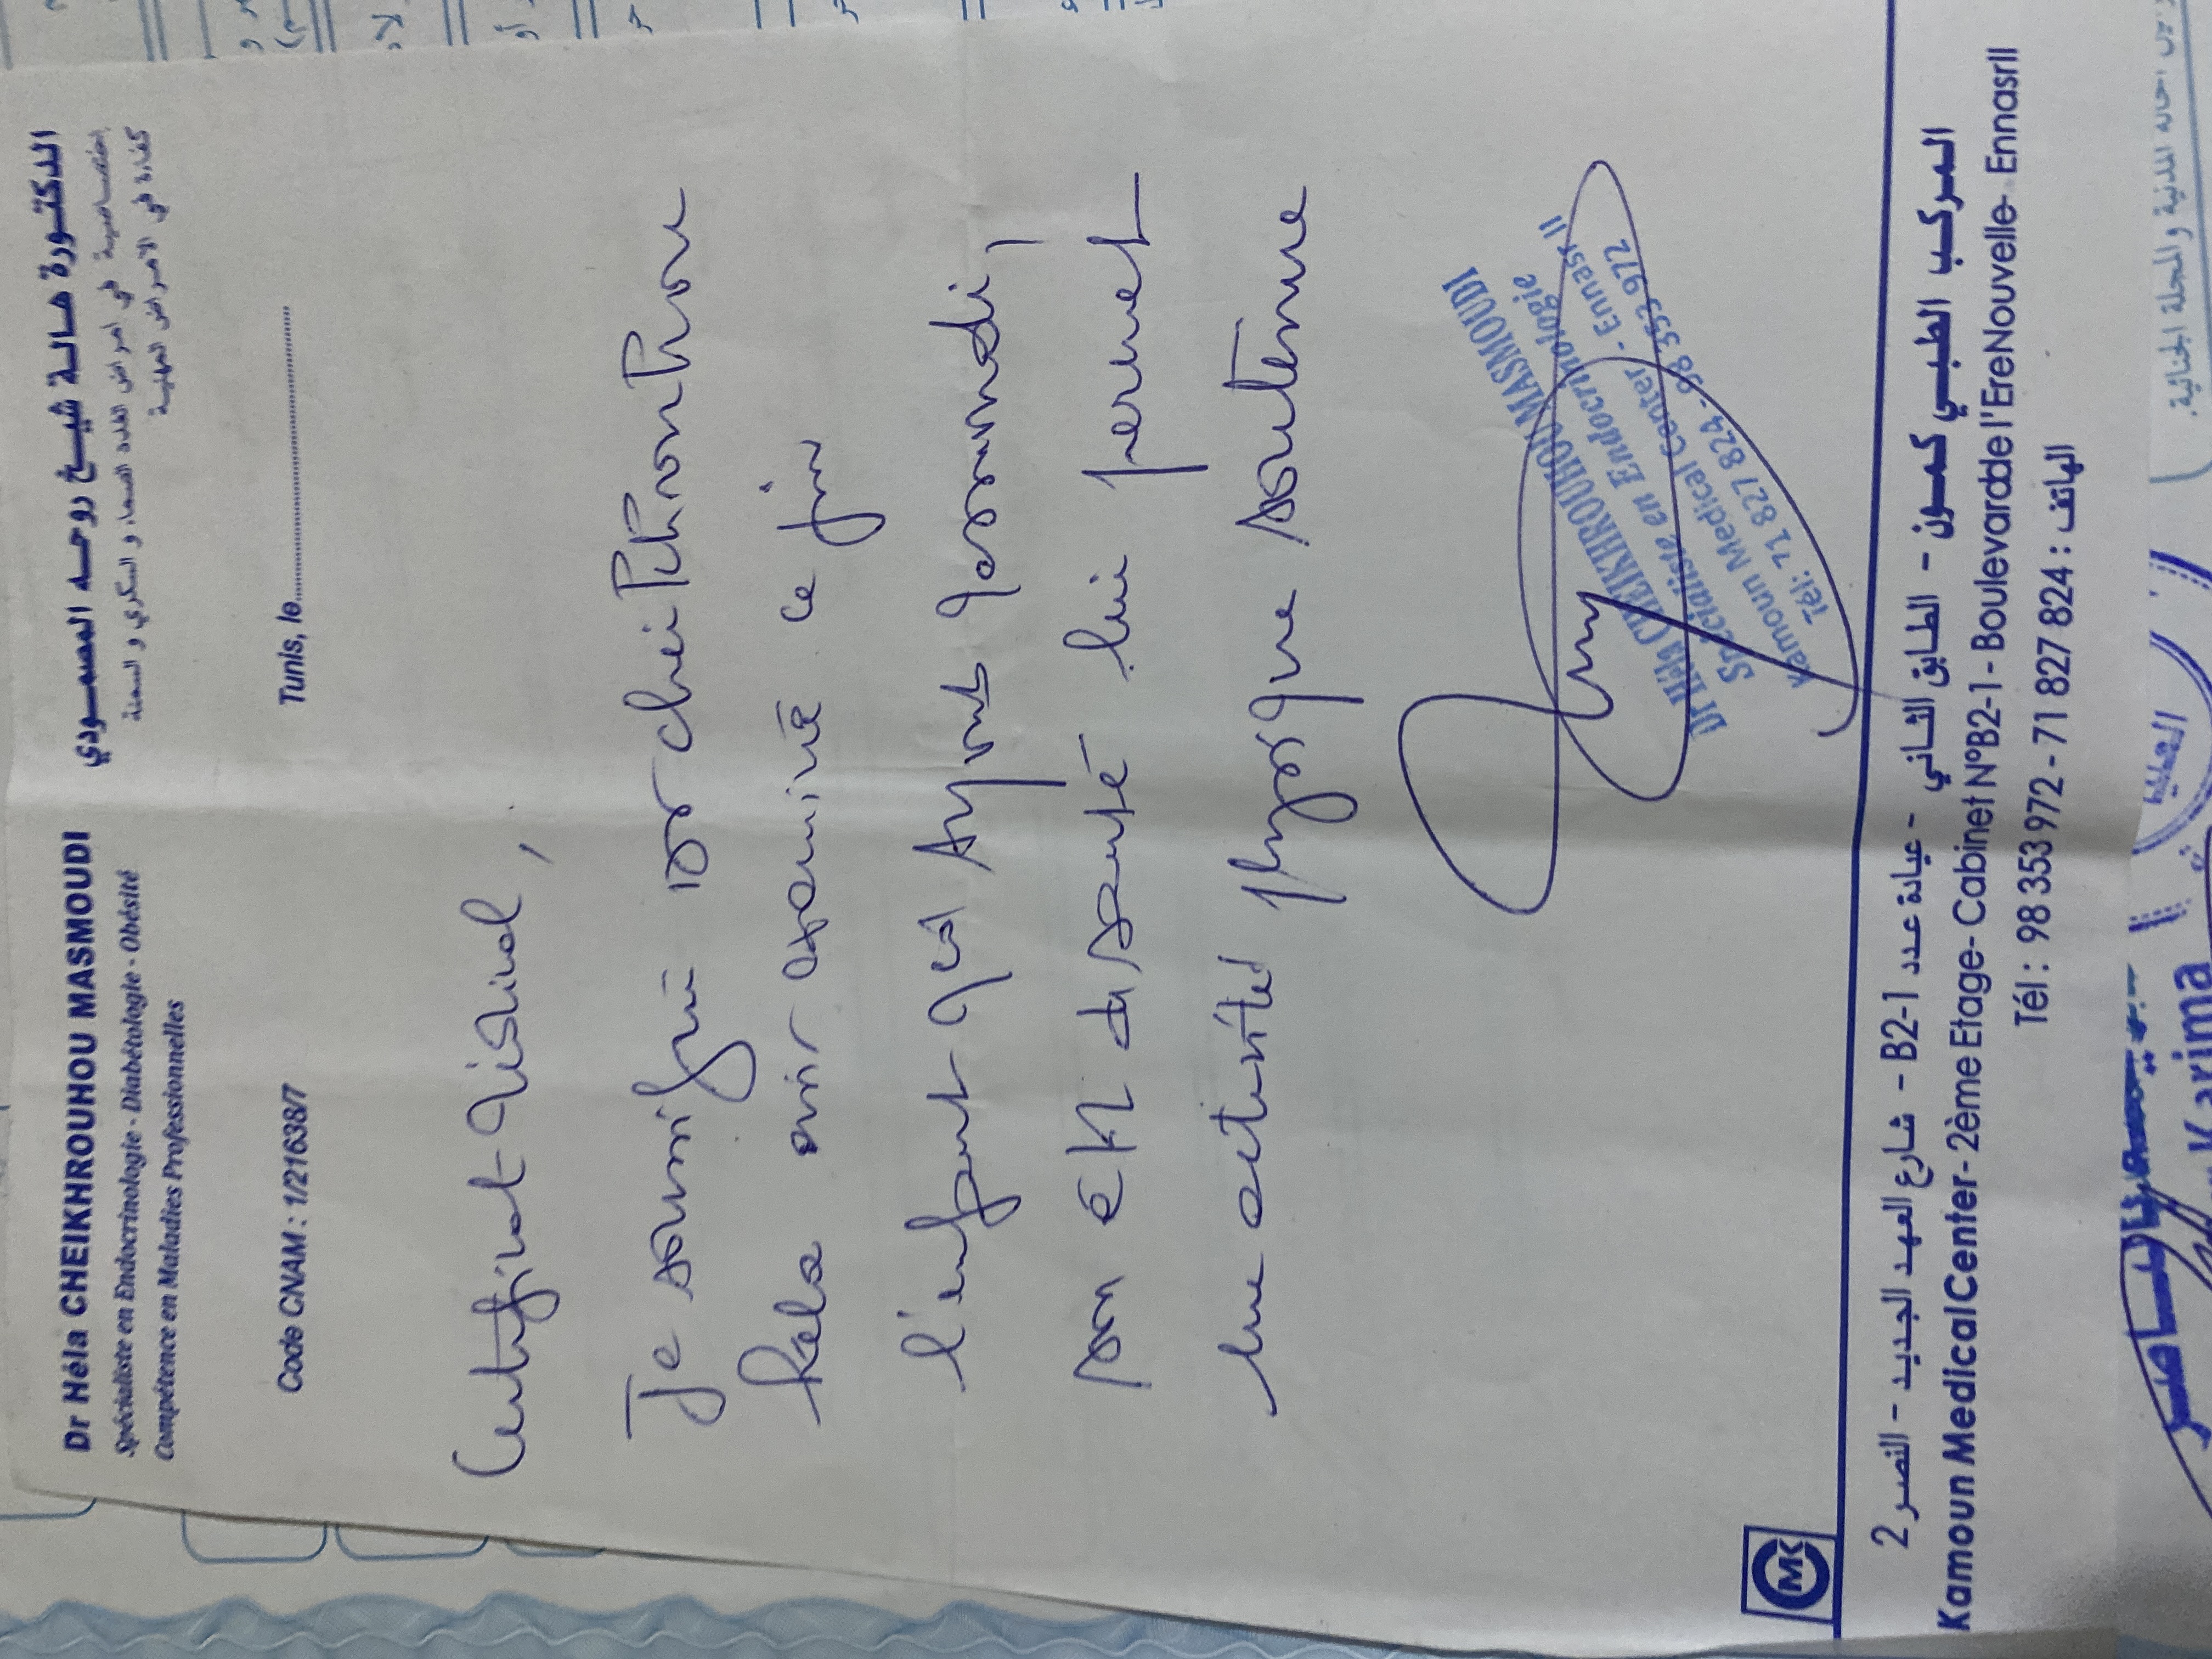 Dr Héla CHEIKHROUHOU MASMOUDI
Spécialiste en Endocrinologie - Diabétologie - Obésité
Compétence en Maladies Professionnelles
الدكتورة هالة شيخ روحه المصمودي
إختصاصية في أمراض الغدد الصماء و السكري و السمنة
كفاءة في الأمراض المهنية
Code CNAM : 1/21638/7
Tunis, le
Certificat Médical,
Je soussigné Dr Cheikhrouhou
Hela avoir examiné ce jour
l'enfant
son état de santé lui permet
une activité physique soutenue
Dr Héla CHEIKHROUHOU MASMOUDI
Spécialiste en Endocrinologie
Kamoun Medical Center - Ennasr II
Tél: 71 827 824 - 98 353 972
CMK
المركب الطبي كمون - الطابق الثاني - عيادة عدد B2-1 - شارع العهد الجديد - النصر 2
Kamoun Medical Center - 2ème Etage - Cabinet N°B2-1 - Boulevard de l'Ere Nouvelle - Ennasr II
Tél : 98 353 972 - 71 827 824 : الهاتف
الحالة المدنية والمجلة الجنائية.
Karima